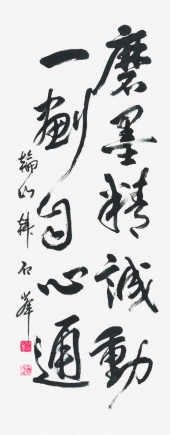 磨墨精誠動
一劃自心通
輪山 韓石峯